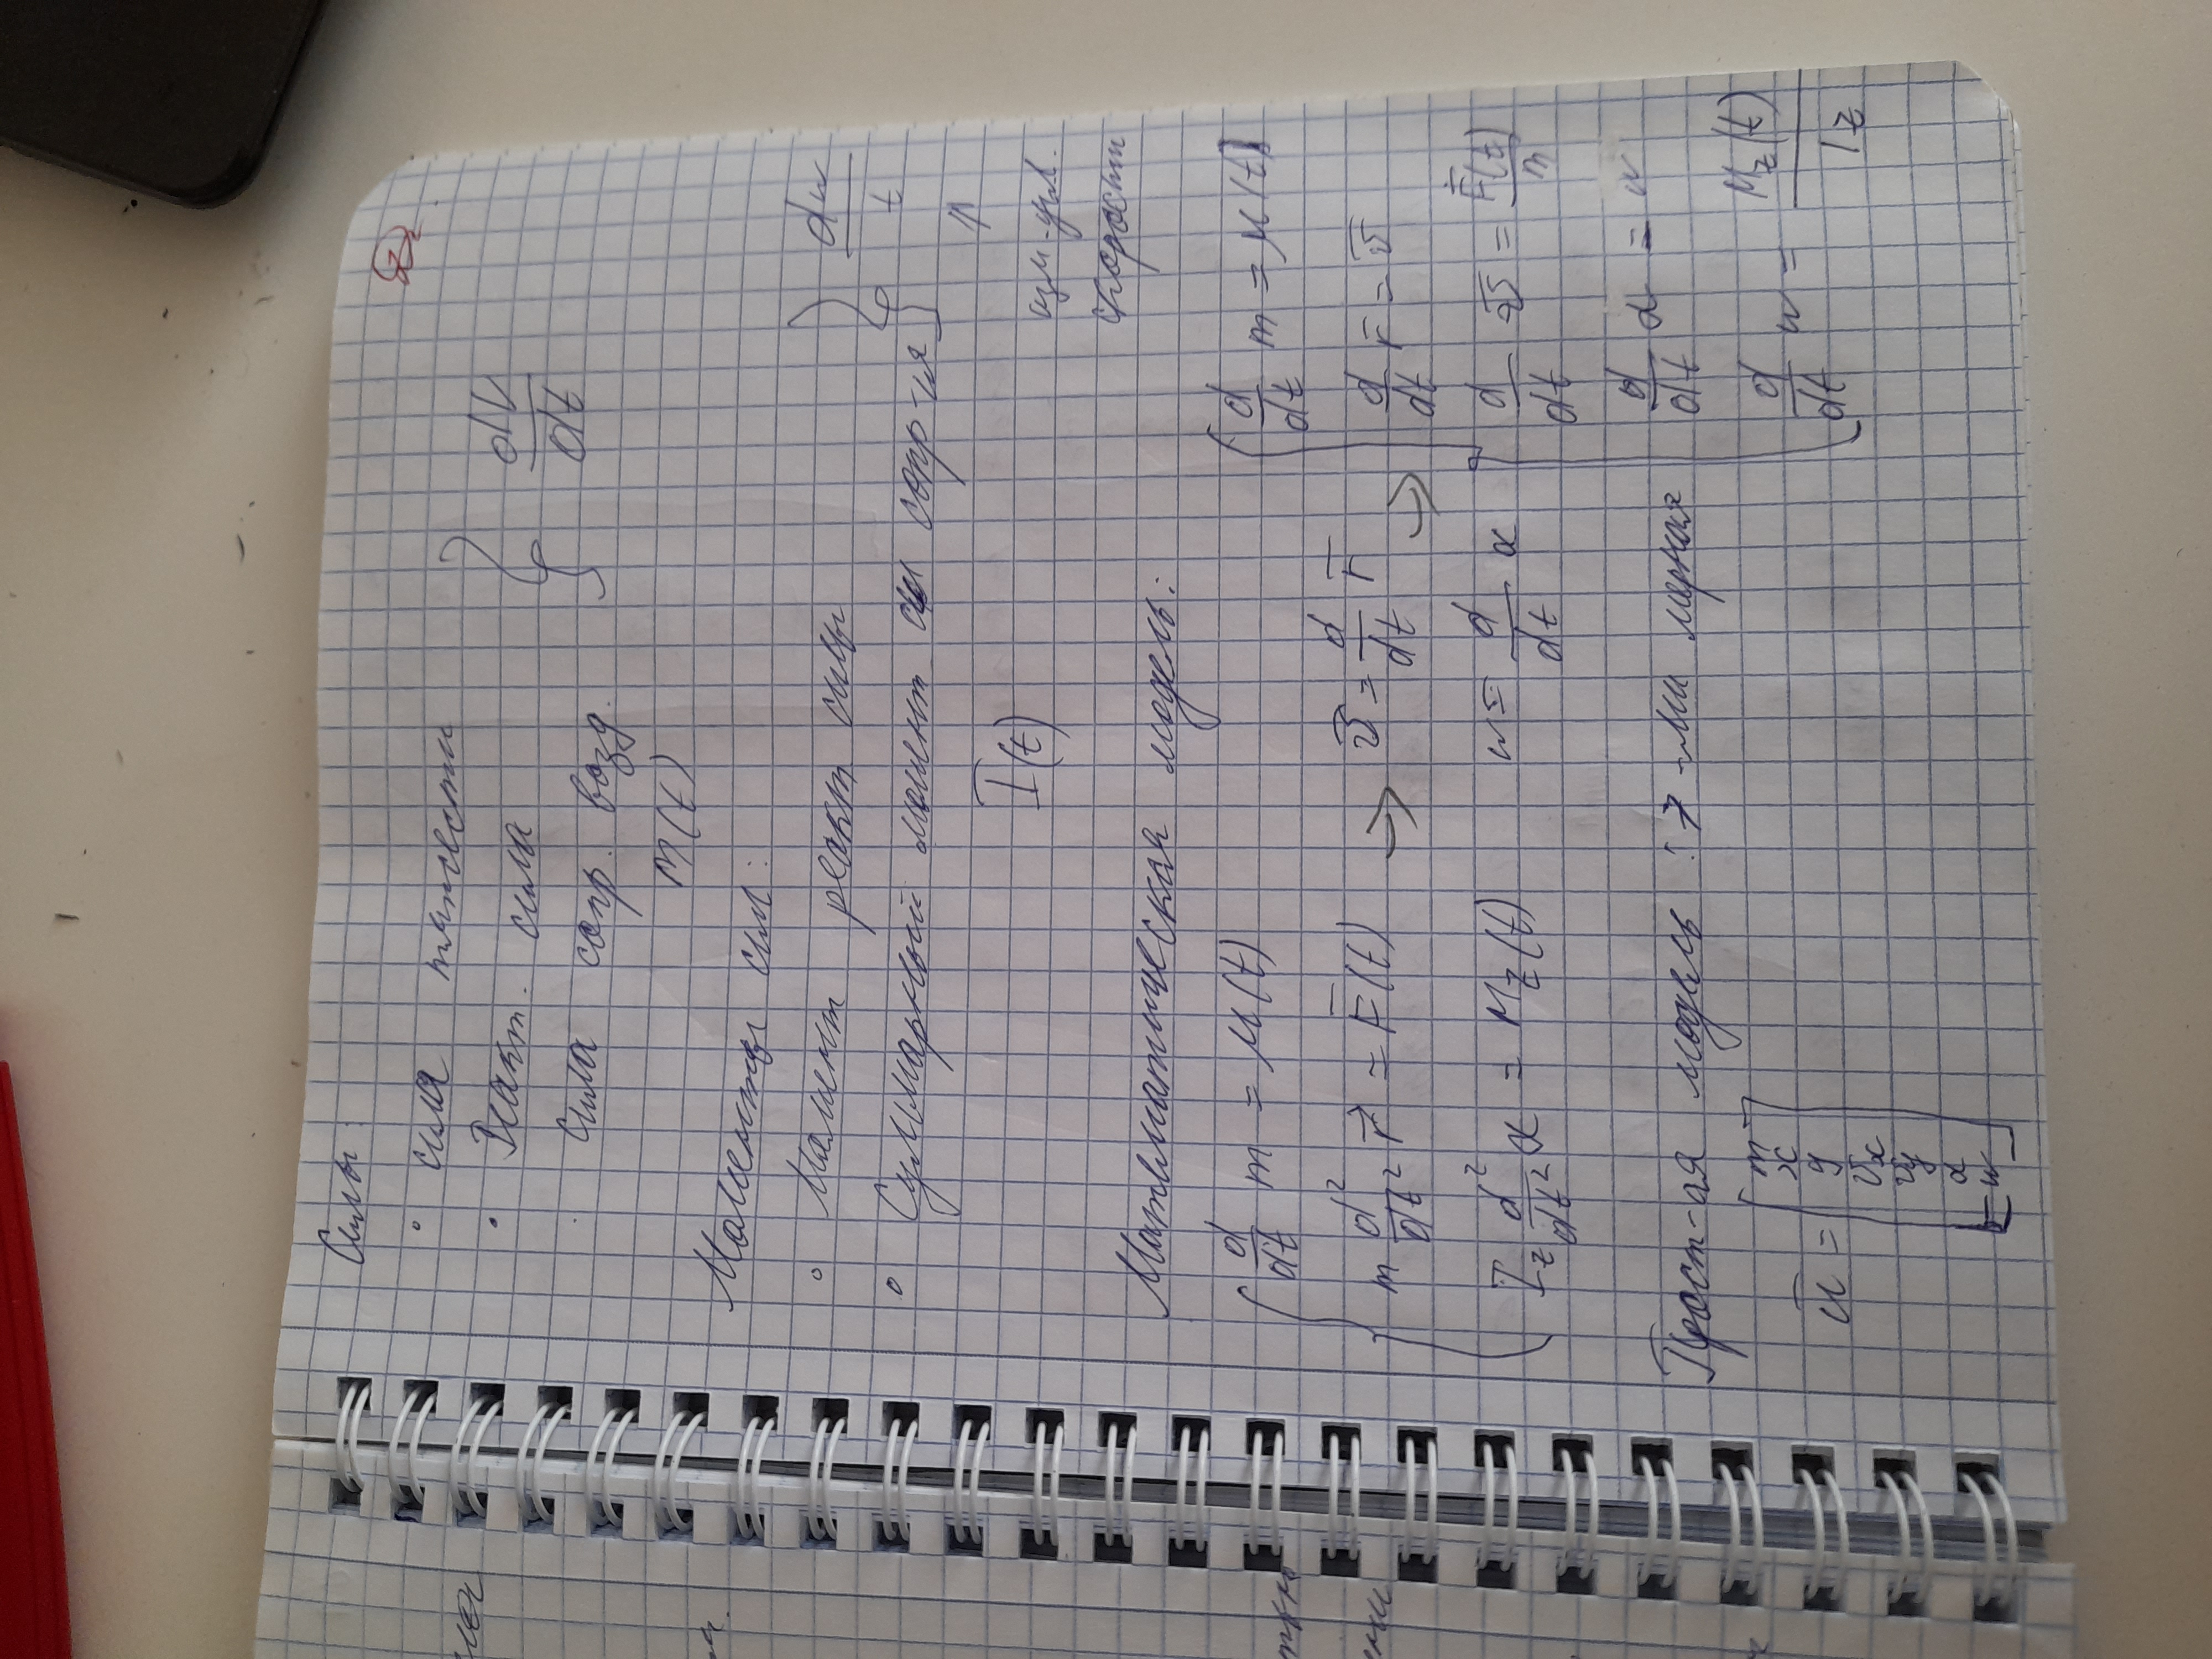 Силы:
• сила тяжести
• Реакт. сила
· сила сопр. возд.
dV/dt
m(t)
Моменты сил:
◦ Момент реакт силы
◦ Суммарный момент сил сопр-ия
dw/t
⇑
изм-угл.
скорости
I(t)
Математическая модель:
d/dt m = μ(t)
m d²/dt² r⃗ = F̅(t)
I_z d²/dt² α = M_z(t)
→
v̅ = d/dt r̅
w = d/dt α
→
d/dt m = μ(t)
d/dt r̅ = v̅
d/dt v̅ = F̅(t)/m
d/dt α = w
d/dt w = M_z(t)/I_z
Прост-ая модель: 7-ми мерная
u̅ =
m
x
y
v_x
v_y
α
w